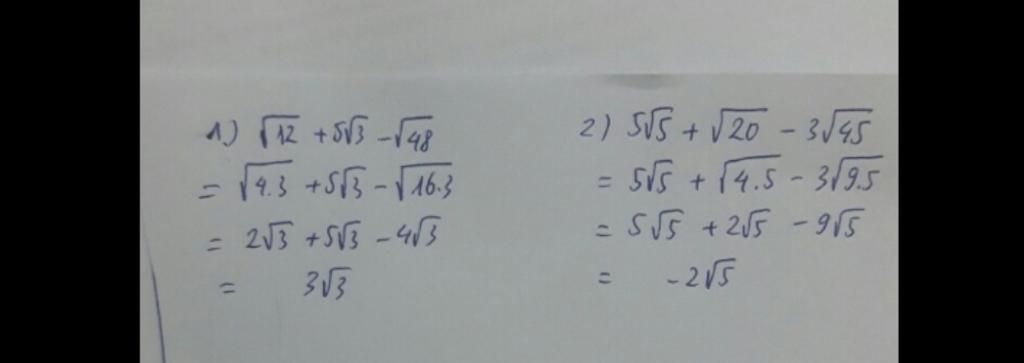 1) √12 + 5√3 - √48
= √4.3 + 5√3 - √16.3
= 2√3 + 5√3 - 4√3
= 3√3
2) 5√5 + √20 - 3√45
= 5√5 + √4.5 - 3√9.5
= 5√5 + 2√5 - 9√5
= -2√5